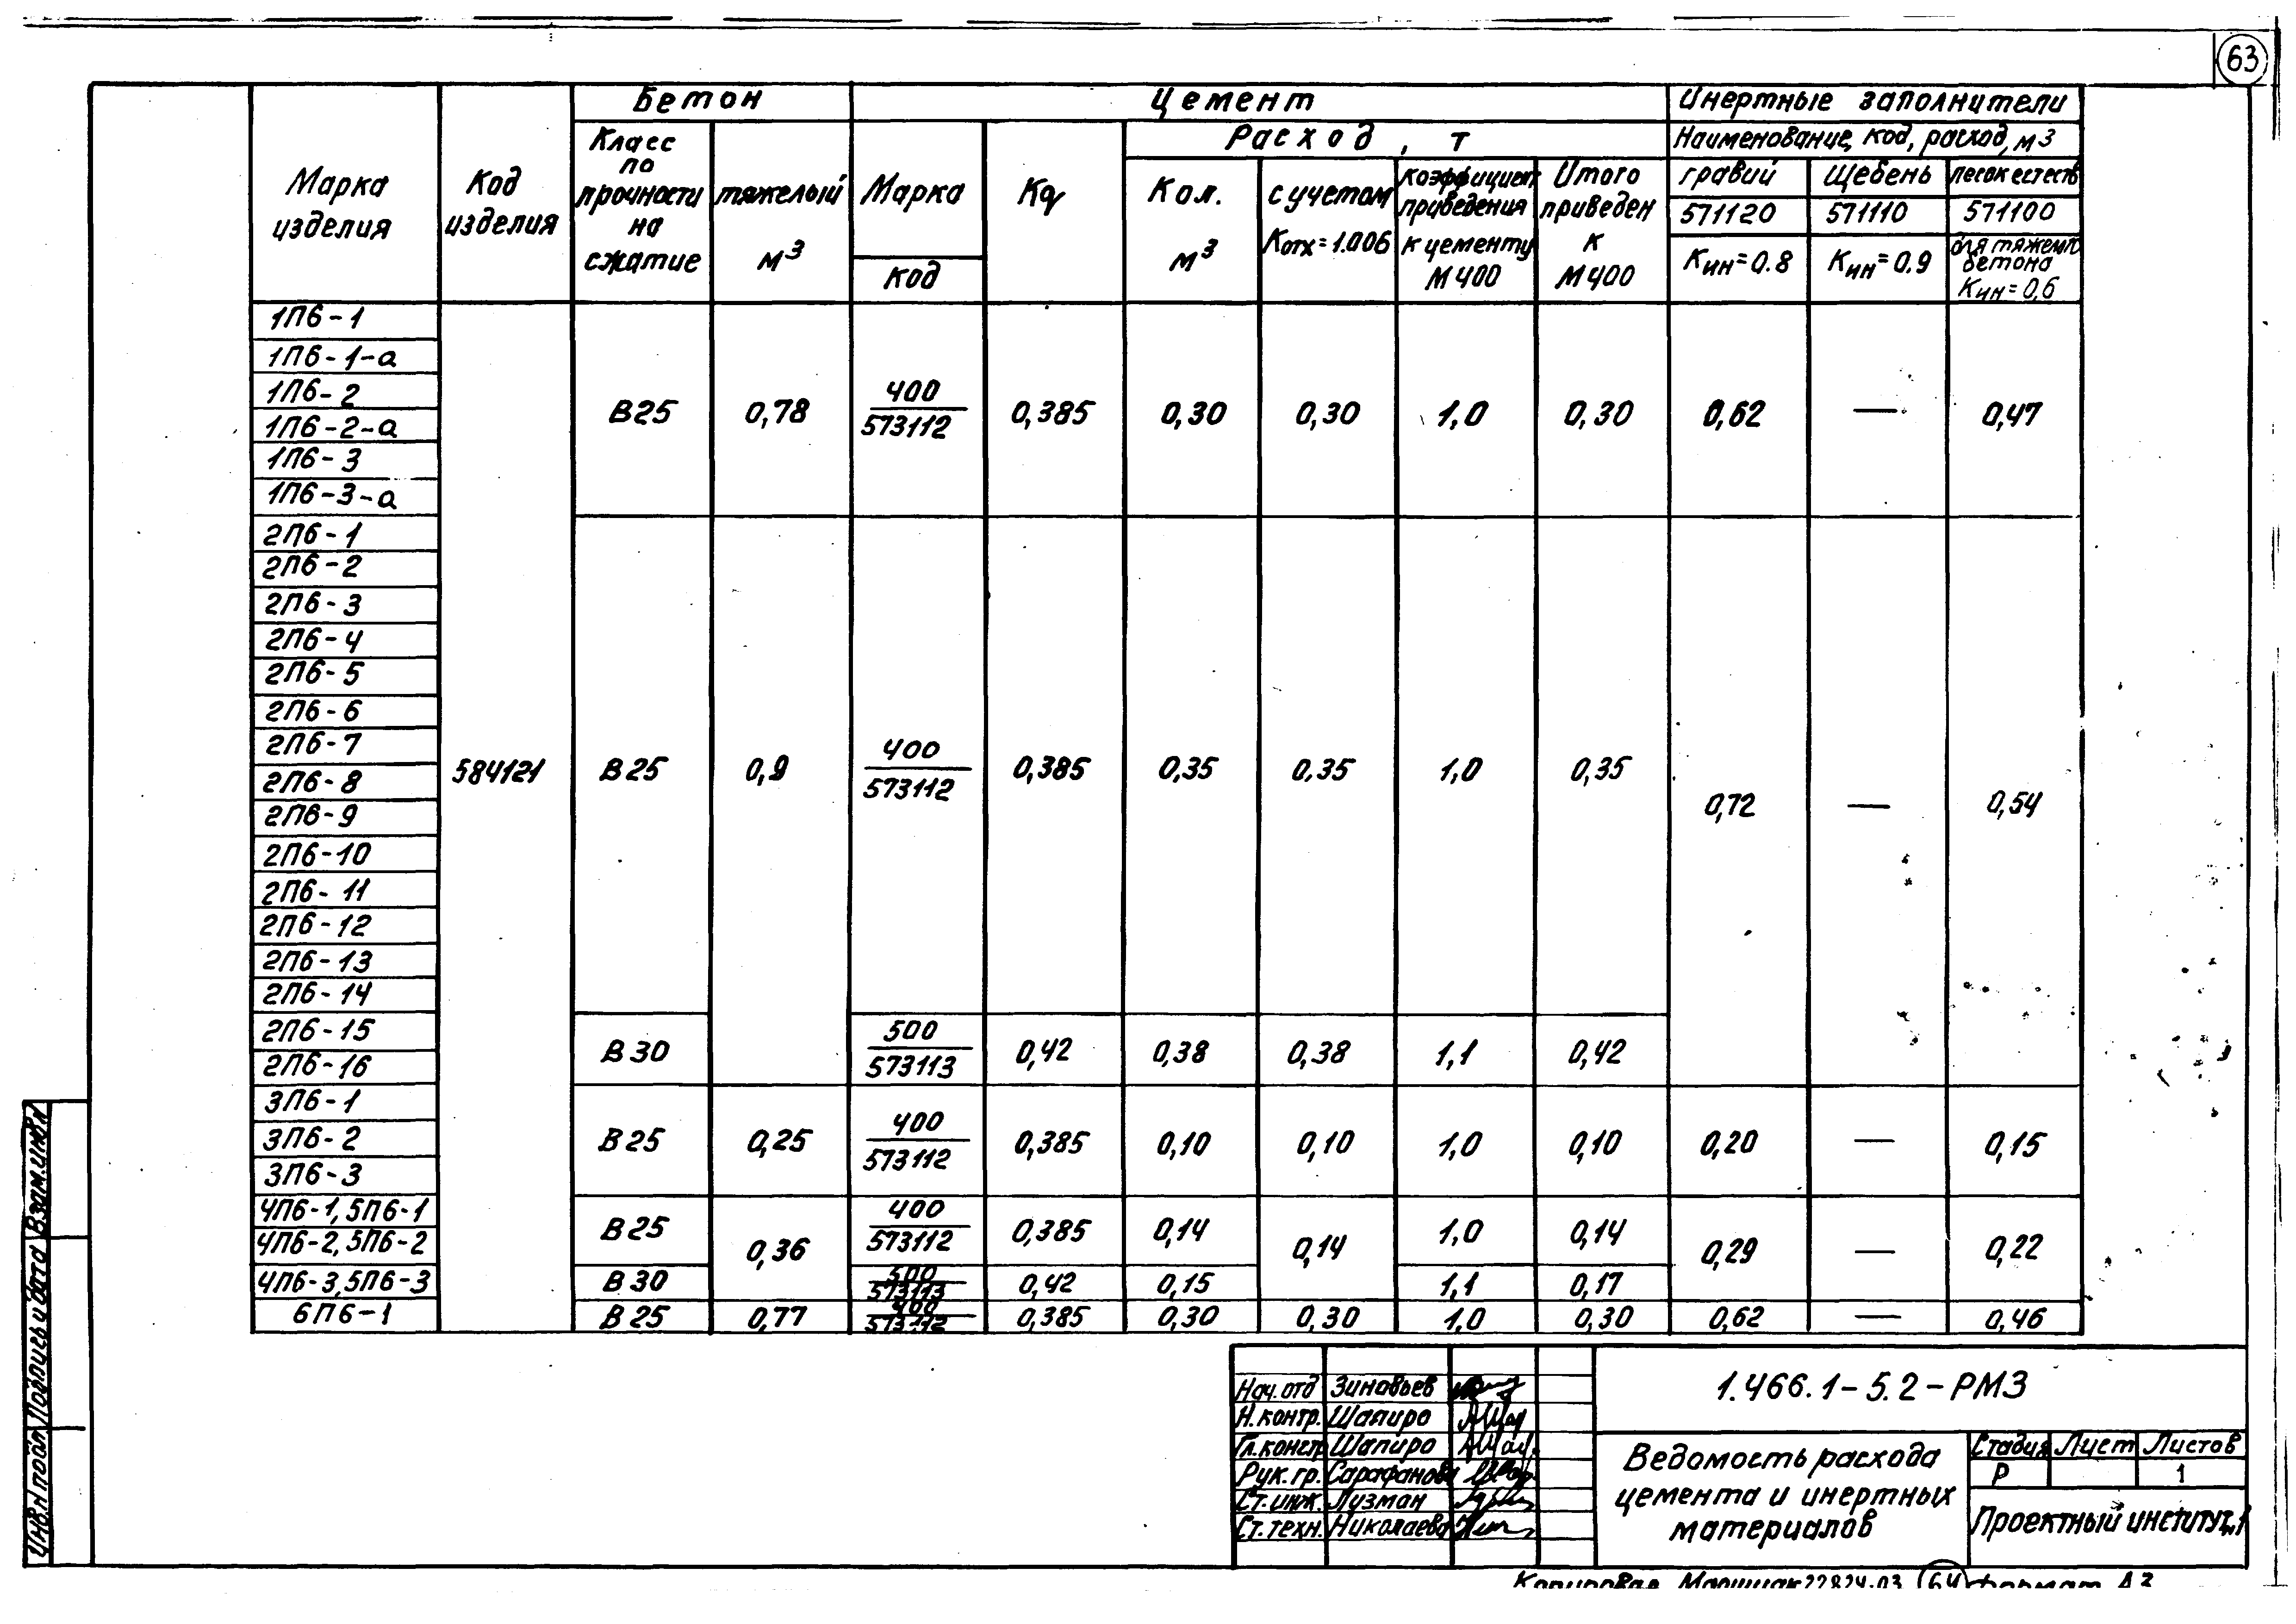 63
Марка изделия
Код изделия
Бетон
Класс по прочности на сжатие
тяжелый м3
Цемент
Марка
код
Кq
Расход, т
Кол. м3
с учетом Котх=1.006
коэффициент приведения к цементу М400
Итого приведен к М400
Инертные заполнители
Наименование, код, расход, м3
гравий щебень песок естеств
571120 571110 571100
Кин=0.8 Кин=0.9 для тяжелого бетона Кин=0,6
1П6-1
1П6-1-а
1П6-2
1П6-2-а
1П6-3
1П6-3-а
В25 0,78 400 573112 0,385 0,30 0,30 1,0 0,30 0,62 — 0,47
2П6-1
2П6-2
2П6-3
2П6-4
2П6-5
2П6-6
2П6-7
2П6-8
2П6-9
2П6-10
2П6-11
2П6-12
2П6-13
2П6-14
584121 В25 0,9 400 573112 0,385 0,35 0,35 1,0 0,35 0,72 — 0,54
2П6-15
2П6-16
В30 500 573113 0,42 0,38 0,38 1,1 0,42
3П6-1
3П6-2
3П6-3
В25 0,25 400 573112 0,385 0,10 0,10 1,0 0,10 0,20 — 0,15
4П6-1, 5П6-1
4П6-2, 5П6-2
В25 0,36 400 573112 0,385 0,14 0,14 1,0 0,14 0,29 — 0,22
4П6-3, 5П6-3 В30 500 573113 0,42 0,15 1,1 0,17
6П6-1 В25 0,77 400 573112 0,385 0,30 0,30 1,0 0,30 0,62 — 0,46
Нач.отд Зиновьев
Н.контр. Шапиро
Гл.констр Шапиро
Рук.гр. Сарафанова
Ст.инж. Лузман
Ст.техн. Николаева
1.466.1-5.2-РМ3
Ведомость расхода
цемента и инертных
материалов
Стадия Лист Листов
Р 1
Проектный институт №1
Инв.N подл Подпись и дата Взам.инв.N
Копировал Маршак 22824-03 64 формат А3